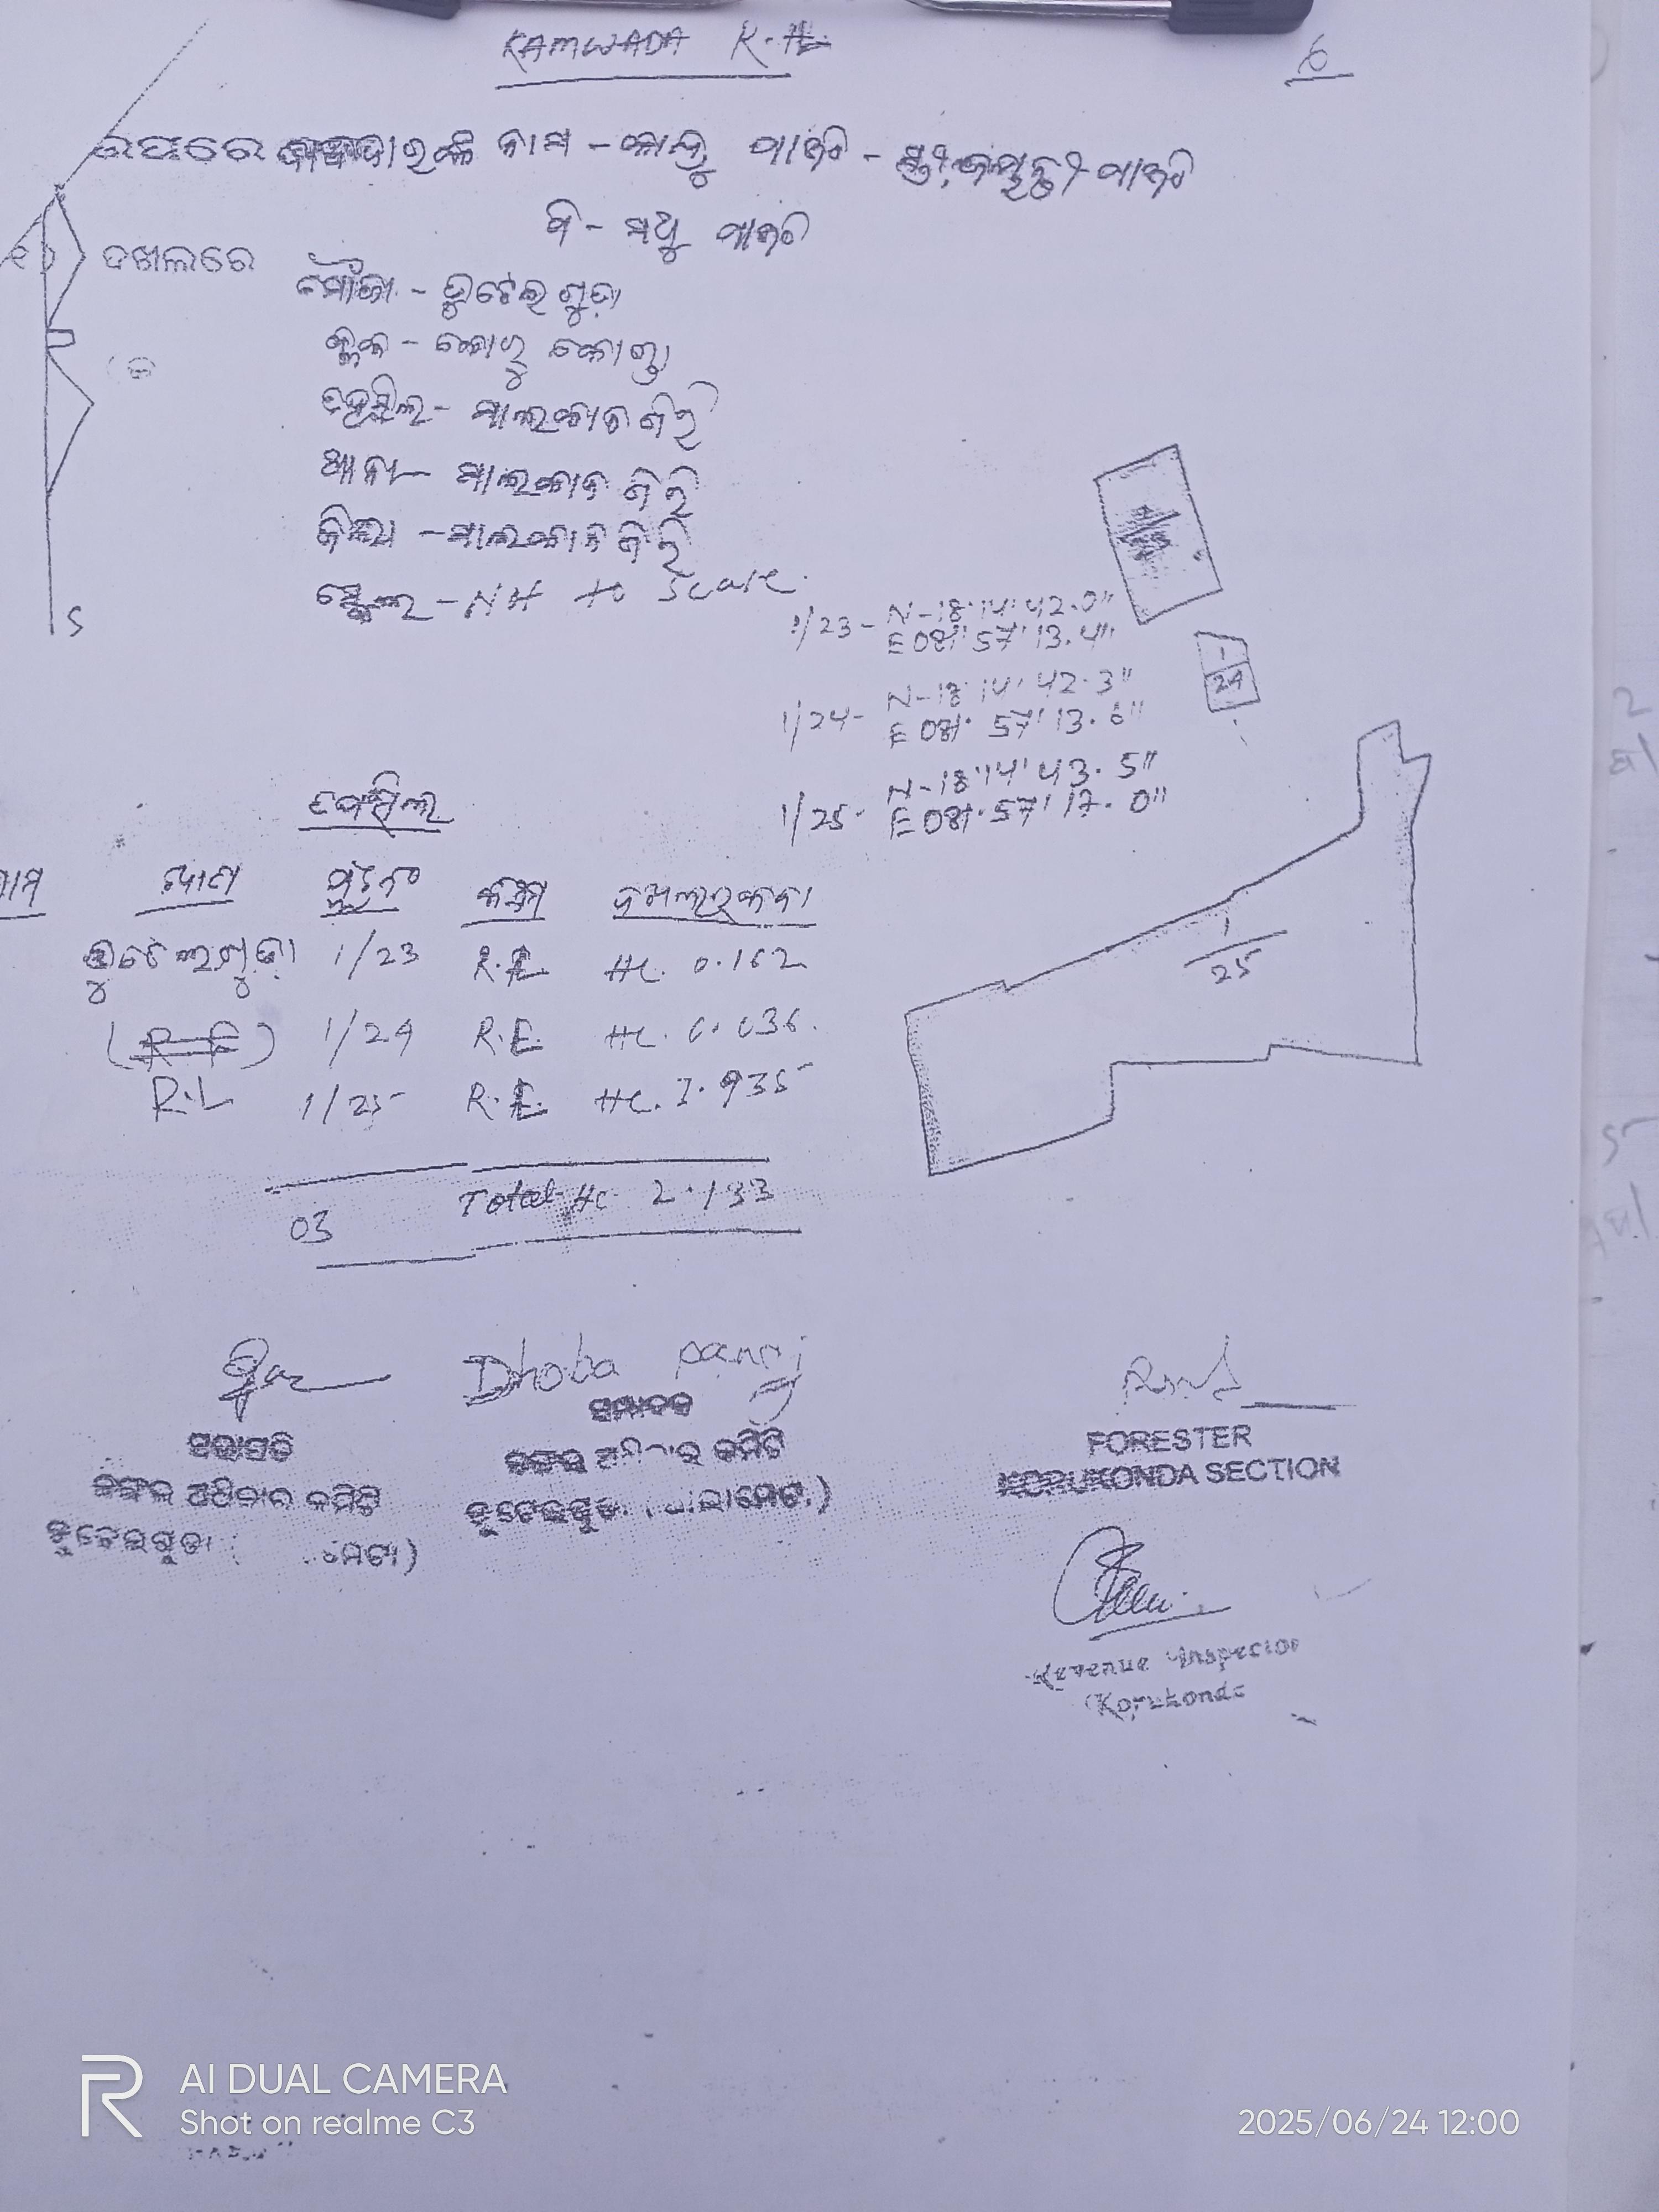 KAMWADA K.H
6
ରଫରେ ଦାବିଦାରଙ୍କ ନାମ - କାନ୍ଦୁ ପାଙ୍ଗୀ - ସ୍ତ୍ରୀ, ପାଙ୍ଗୀ
ପି - ମଧୁ ପାଙ୍ଗୀ
ଦଖଲରେ
ମୌଜା - ତୁଟେଇଗୁଡ଼ା
ବ୍ଲକ - କୋରୁକୋଣ୍ଡା
ତହସିଲ - ମାଲକାନଗିରି
ଥାନା - ମାଲକାନଗିରି
ଜିଲ୍ଲା - ମାଲକାନଗିରି
ସ୍କେଲ - Not to Scale.
S
1/23 - N-18°14'42.0"
E 081°57'13.4"
1/24
1/24 - N-18°14'42.3"
E 081°57'13.6"
1/25 - N-18°14'43.5"
E 081°57'17.0"
1/25
ତପସିଲ
ଖାତା ପ୍ଲଟ ନଂ କିସମ ଦଖଲ ରକବା
1/23 R.F. Hc. 0.162
(R.F) 1/24 R.F. Hc. 0.036.
R.L 1/25 R.F. Hc. 1.935
03 Total Hc 2.133
Dhoba pangi
ସଭାପତି
ଜଙ୍ଗଲ ଅଧିକାର କମିଟି
ତୁଟେଇଗୁଡା ମେଟା)
ସମ୍ପାଦକ
ଜଙ୍ଗଲ ଅଧିକାର କମିଟି
ତୁଟେଇଗୁଡା
FORESTER
KORUKONDA SECTION
Revenue Inspector
Korukonda
AI DUAL CAMERA
Shot on realme C3
2025/06/24 12:00